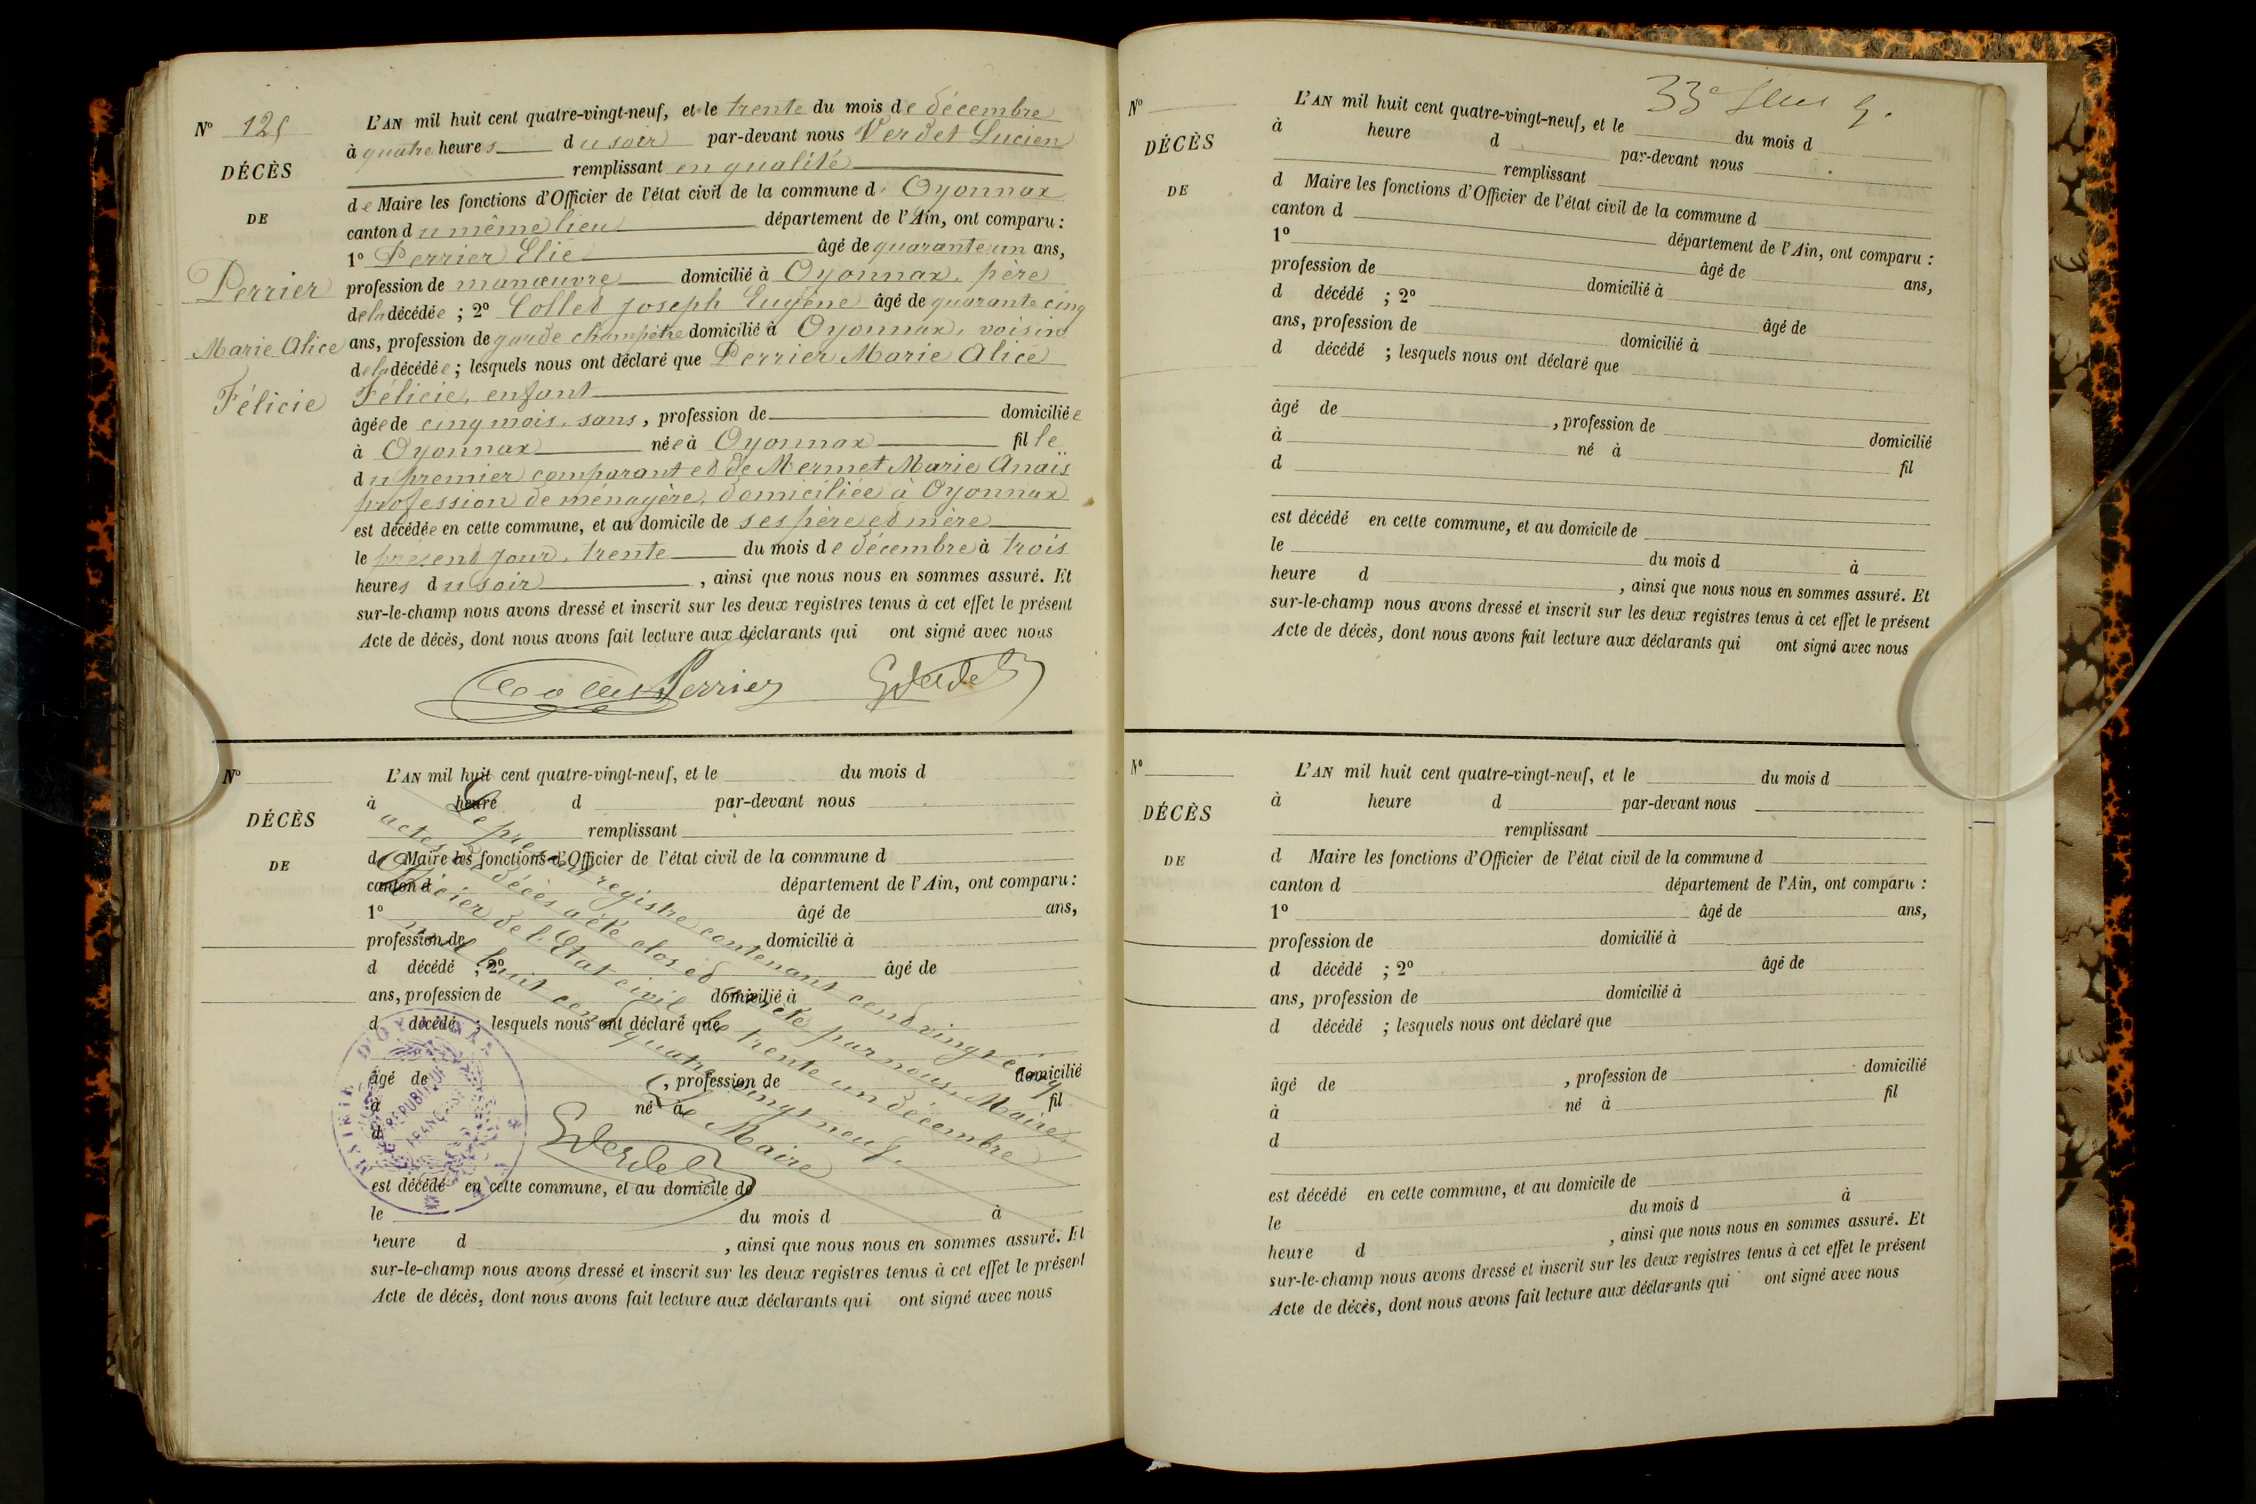 N° 125
DÉCÈS
DE
Perrier
Marie Alice
Félicie
L'AN mil huit cent quatre-vingt-neuf, et le trente du mois de décembre
à quatre heures du soir par-devant nous Verdet Lucien
remplissant en qualité
de Maire les fonctions d'Officier de l'état civil de la commune d' Oyonnax
canton du même lieu département de l'Ain, ont comparu :
1° Perrier Elie âgé de quarante un ans,
profession de manœuvre domicilié à Oyonnax, père
de la décédée ; 2° Collet Joseph Eugène âgé de quarante cinq
ans, profession de garde champêtre domicilié à Oyonnax, voisin
de la décédée ; lesquels nous ont déclaré que Perrier Marie Alice
Félicie, enfant
âgée de cinq mois, sans, profession de domiciliée
à Oyonnax née à Oyonnax fille
du premier comparant et de Mermet Marie Anaïs
profession de ménagère, domiciliée à Oyonnax
est décédée en cette commune, et au domicile de ses père et mère
le présent jour, trente du mois de décembre à trois
heures du soir , ainsi que nous nous en sommes assuré. Et
sur-le-champ nous avons dressé et inscrit sur les deux registres tenus à cet effet le présent
Acte de décès, dont nous avons fait lecture aux déclarants qui ont signé avec nous
Collet Perrier Verdet
N°
DÉCÈS
DE
L'AN mil huit cent quatre-vingt-neuf, et le du mois d
à heure d par-devant nous
remplissant
d Maire les fonctions d'Officier de l'état civil de la commune d
canton d département de l'Ain, ont comparu :
1° âgé de ans,
profession de domicilié à
d décédé ; 2° âgé de
ans, profession de domicilié à
d décédé ; lesquels nous ont déclaré que
âgé de , profession de domicilié
à né à fil
d
est décédé en cette commune, et au domicile de
le du mois d à
heure d , ainsi que nous nous en sommes assuré. Et
sur-le-champ nous avons dressé et inscrit sur les deux registres tenus à cet effet le présent
Acte de décès, dont nous avons fait lecture aux déclarants qui ont signé avec nous
Le présent registre contenant cent vingt cinq
actes de décès a été clos et arrêté par nous, Maire,
Officier de l'Etat civil le trente un décembre
mil huit cent quatre vingt neuf.
Le Maire
Verdet
MAIRIE D'OYONNAX
RÉPUBLIQUE
FRANÇAISE
33e
N°
DÉCÈS
DE
L'AN mil huit cent quatre-vingt-neuf, et le du mois d
à heure d par-devant nous
remplissant
d Maire les fonctions d'Officier de l'état civil de la commune d
canton d département de l'Ain, ont comparu :
1° âgé de ans,
profession de domicilié à
d décédé ; 2° âgé de
ans, profession de domicilié à
d décédé ; lesquels nous ont déclaré que
âgé de , profession de domicilié
à né à fil
d
est décédé en cette commune, et au domicile de
le du mois d à
heure d , ainsi que nous nous en sommes assuré. Et
sur-le-champ nous avons dressé et inscrit sur les deux registres tenus à cet effet le présent
Acte de décès, dont nous avons fait lecture aux déclarants qui ont signé avec nous
N°
DÉCÈS
DE
L'AN mil huit cent quatre-vingt-neuf, et le du mois d
à heure d par-devant nous
remplissant
d Maire les fonctions d'Officier de l'état civil de la commune d
canton d département de l'Ain, ont comparu :
1° âgé de ans,
profession de domicilié à
d décédé ; 2° âgé de
ans, profession de domicilié à
d décédé ; lesquels nous ont déclaré que
âgé de , profession de domicilié
à né à fil
d
est décédé en cette commune, et au domicile de
le du mois d à
heure d , ainsi que nous nous en sommes assuré. Et
sur-le-champ nous avons dressé et inscrit sur les deux registres tenus à cet effet le présent
Acte de décès, dont nous avons fait lecture aux déclarants qui ont signé avec nous